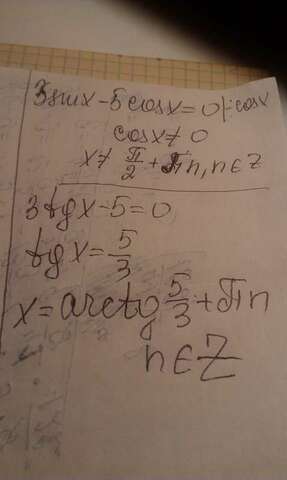 3sinx-5cosx=0|:cosx
cosx≠0
x≠π/2+πn, n∈Z
3tgx-5=0
tgx=5/3
x=arctg 5/3+πn
n∈Z